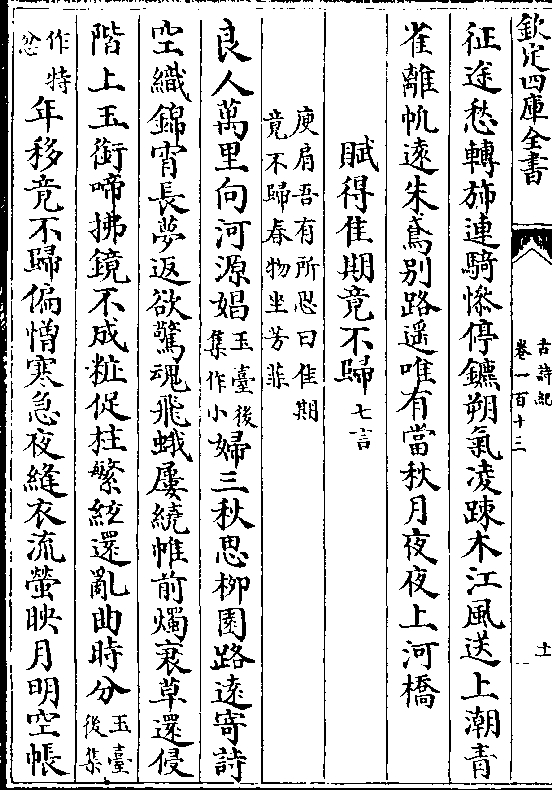 欽定四庫全書
古詩紀
卷一百十三
土
征途愁轉斾連騎慘停鑣朔氣凌踈木江風送上潮青
雀離帆遠朱鳶別路遥唯有當秋月夜夜上河橋
賦得佳期竟不歸七言
庾肩吾有所思曰佳期
竟不歸春物坐芳菲
良人萬里向河源娼玉臺後集作小婦三秋思柳園路遠寄詩
空織錦宵長夢返欲驚魂飛蛾屢繞帷前燭衰草還侵
階上玉銜啼拂鏡不成粧促柱繁絃還亂曲時分玉臺後集
作特忿年移竟不歸偏憎寒急夜縫衣流螢映月明空帳